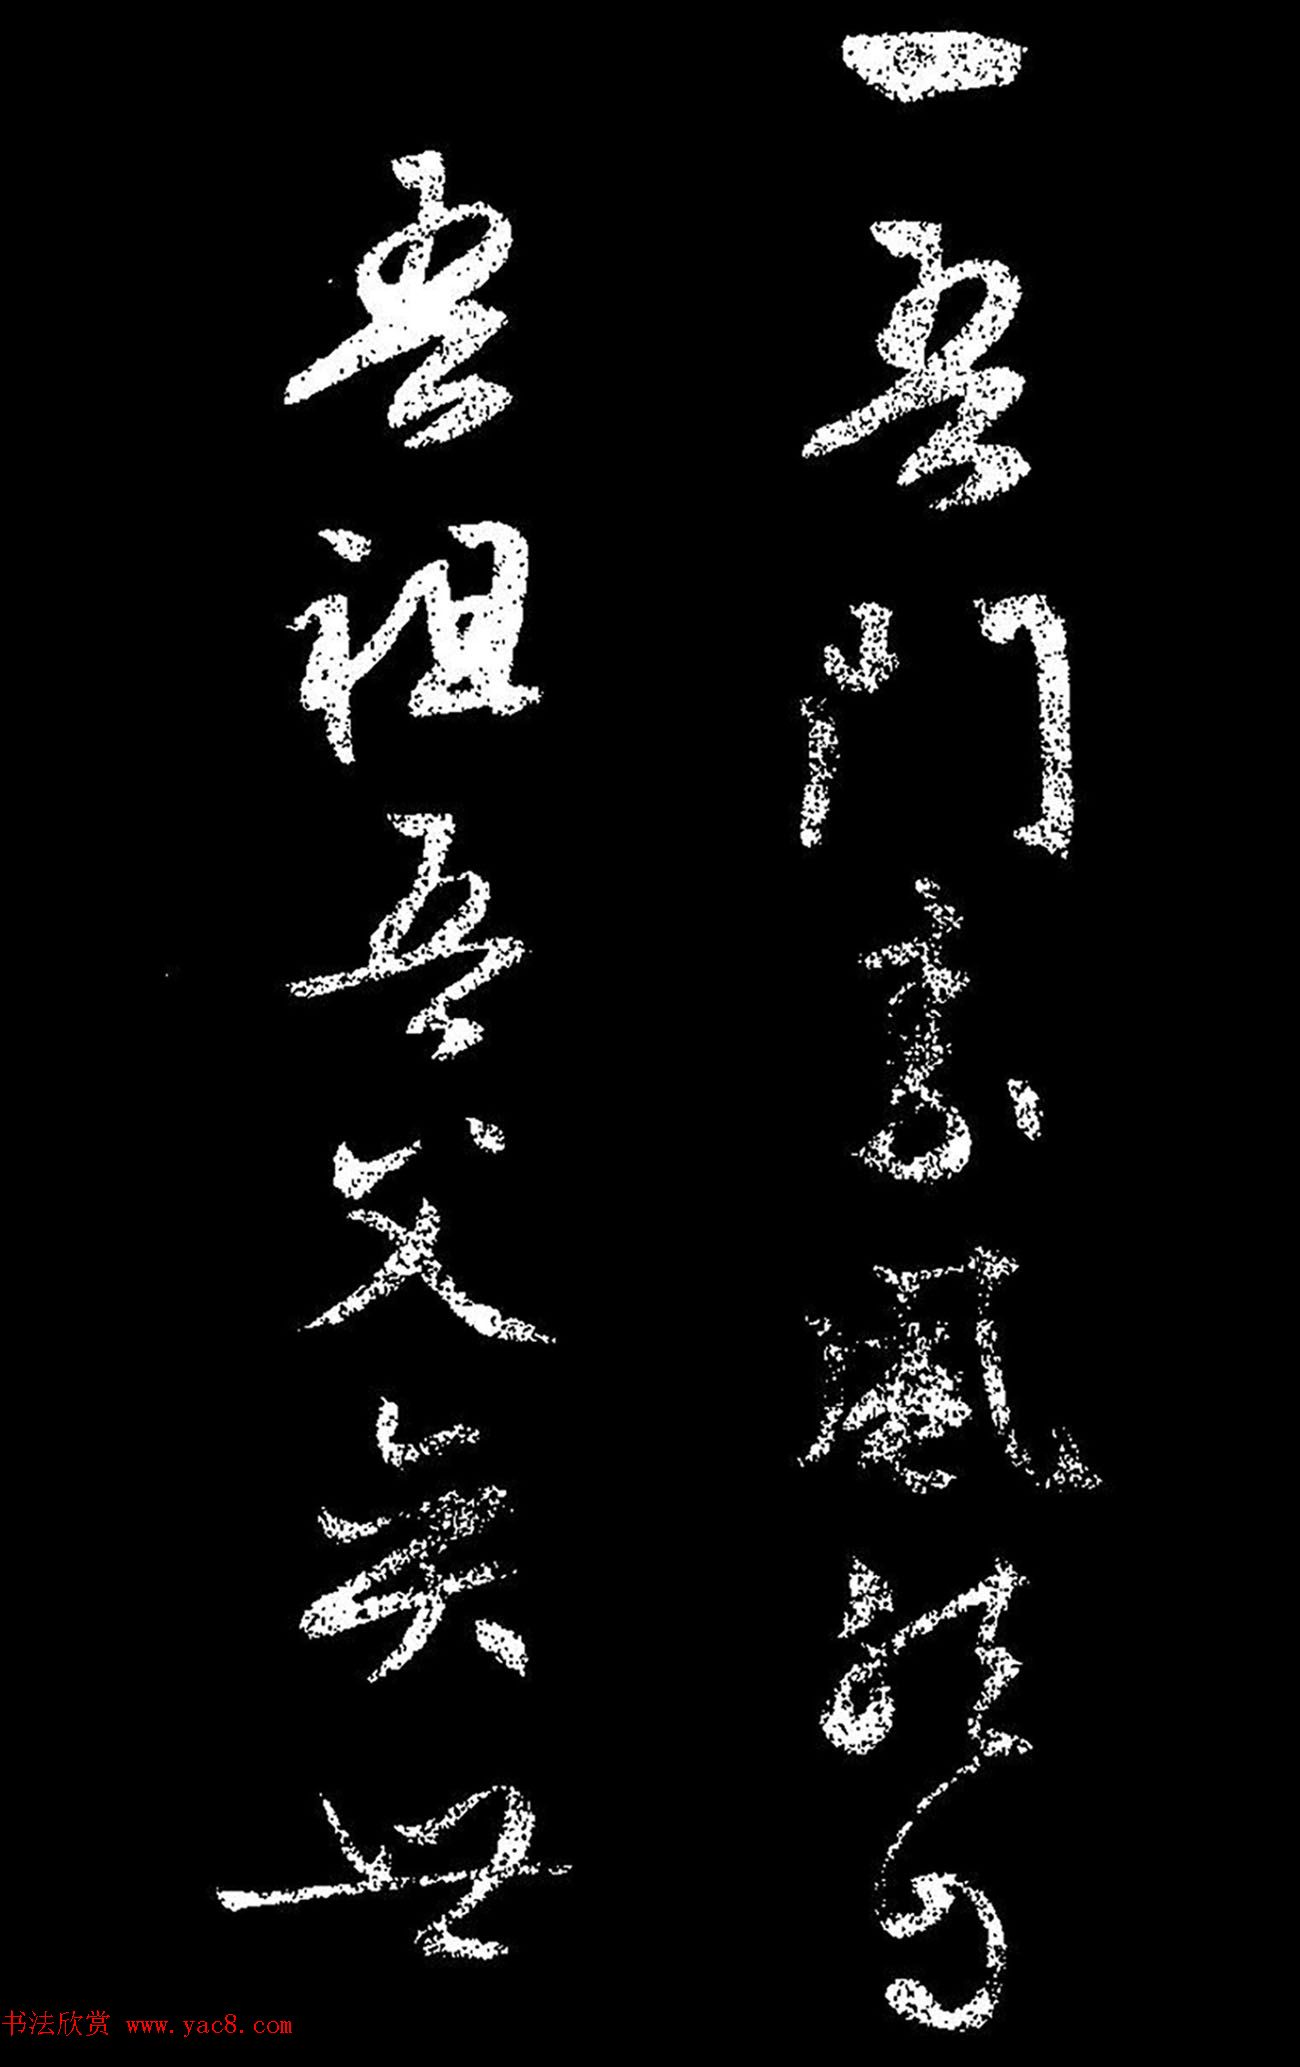 一吾門素風頗高
吾祖吾父矣
书法欣赏 www.yac8.com